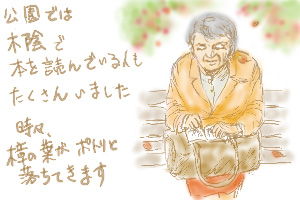 公園では
木陰で
本を読んでいる人も
たくさんいました
時々、
樟の葉が ポトリと
落ちてきます